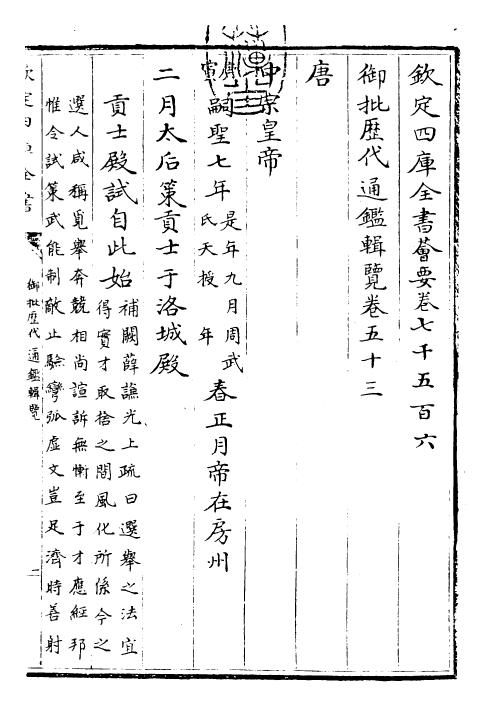 欽定四庫全書薈要卷七千五百六
御批歷代通鑑輯覽卷五十三
唐
中宗皇帝
嗣聖七年是年九月周武氏天授 年春正月帝在房州
二月太后策貢士于洛城殿
貢士殿試自此始補闕薛謙光上疏曰選舉之法宜
得實才取捨之間風化所係今之
選人咸稱覓舉奔競相尚諠訴無慚至于才應經邦
惟令試策武能制敵止驗彎弧虛文豈足濟時善射
御批歷代通鑑輯覽
二